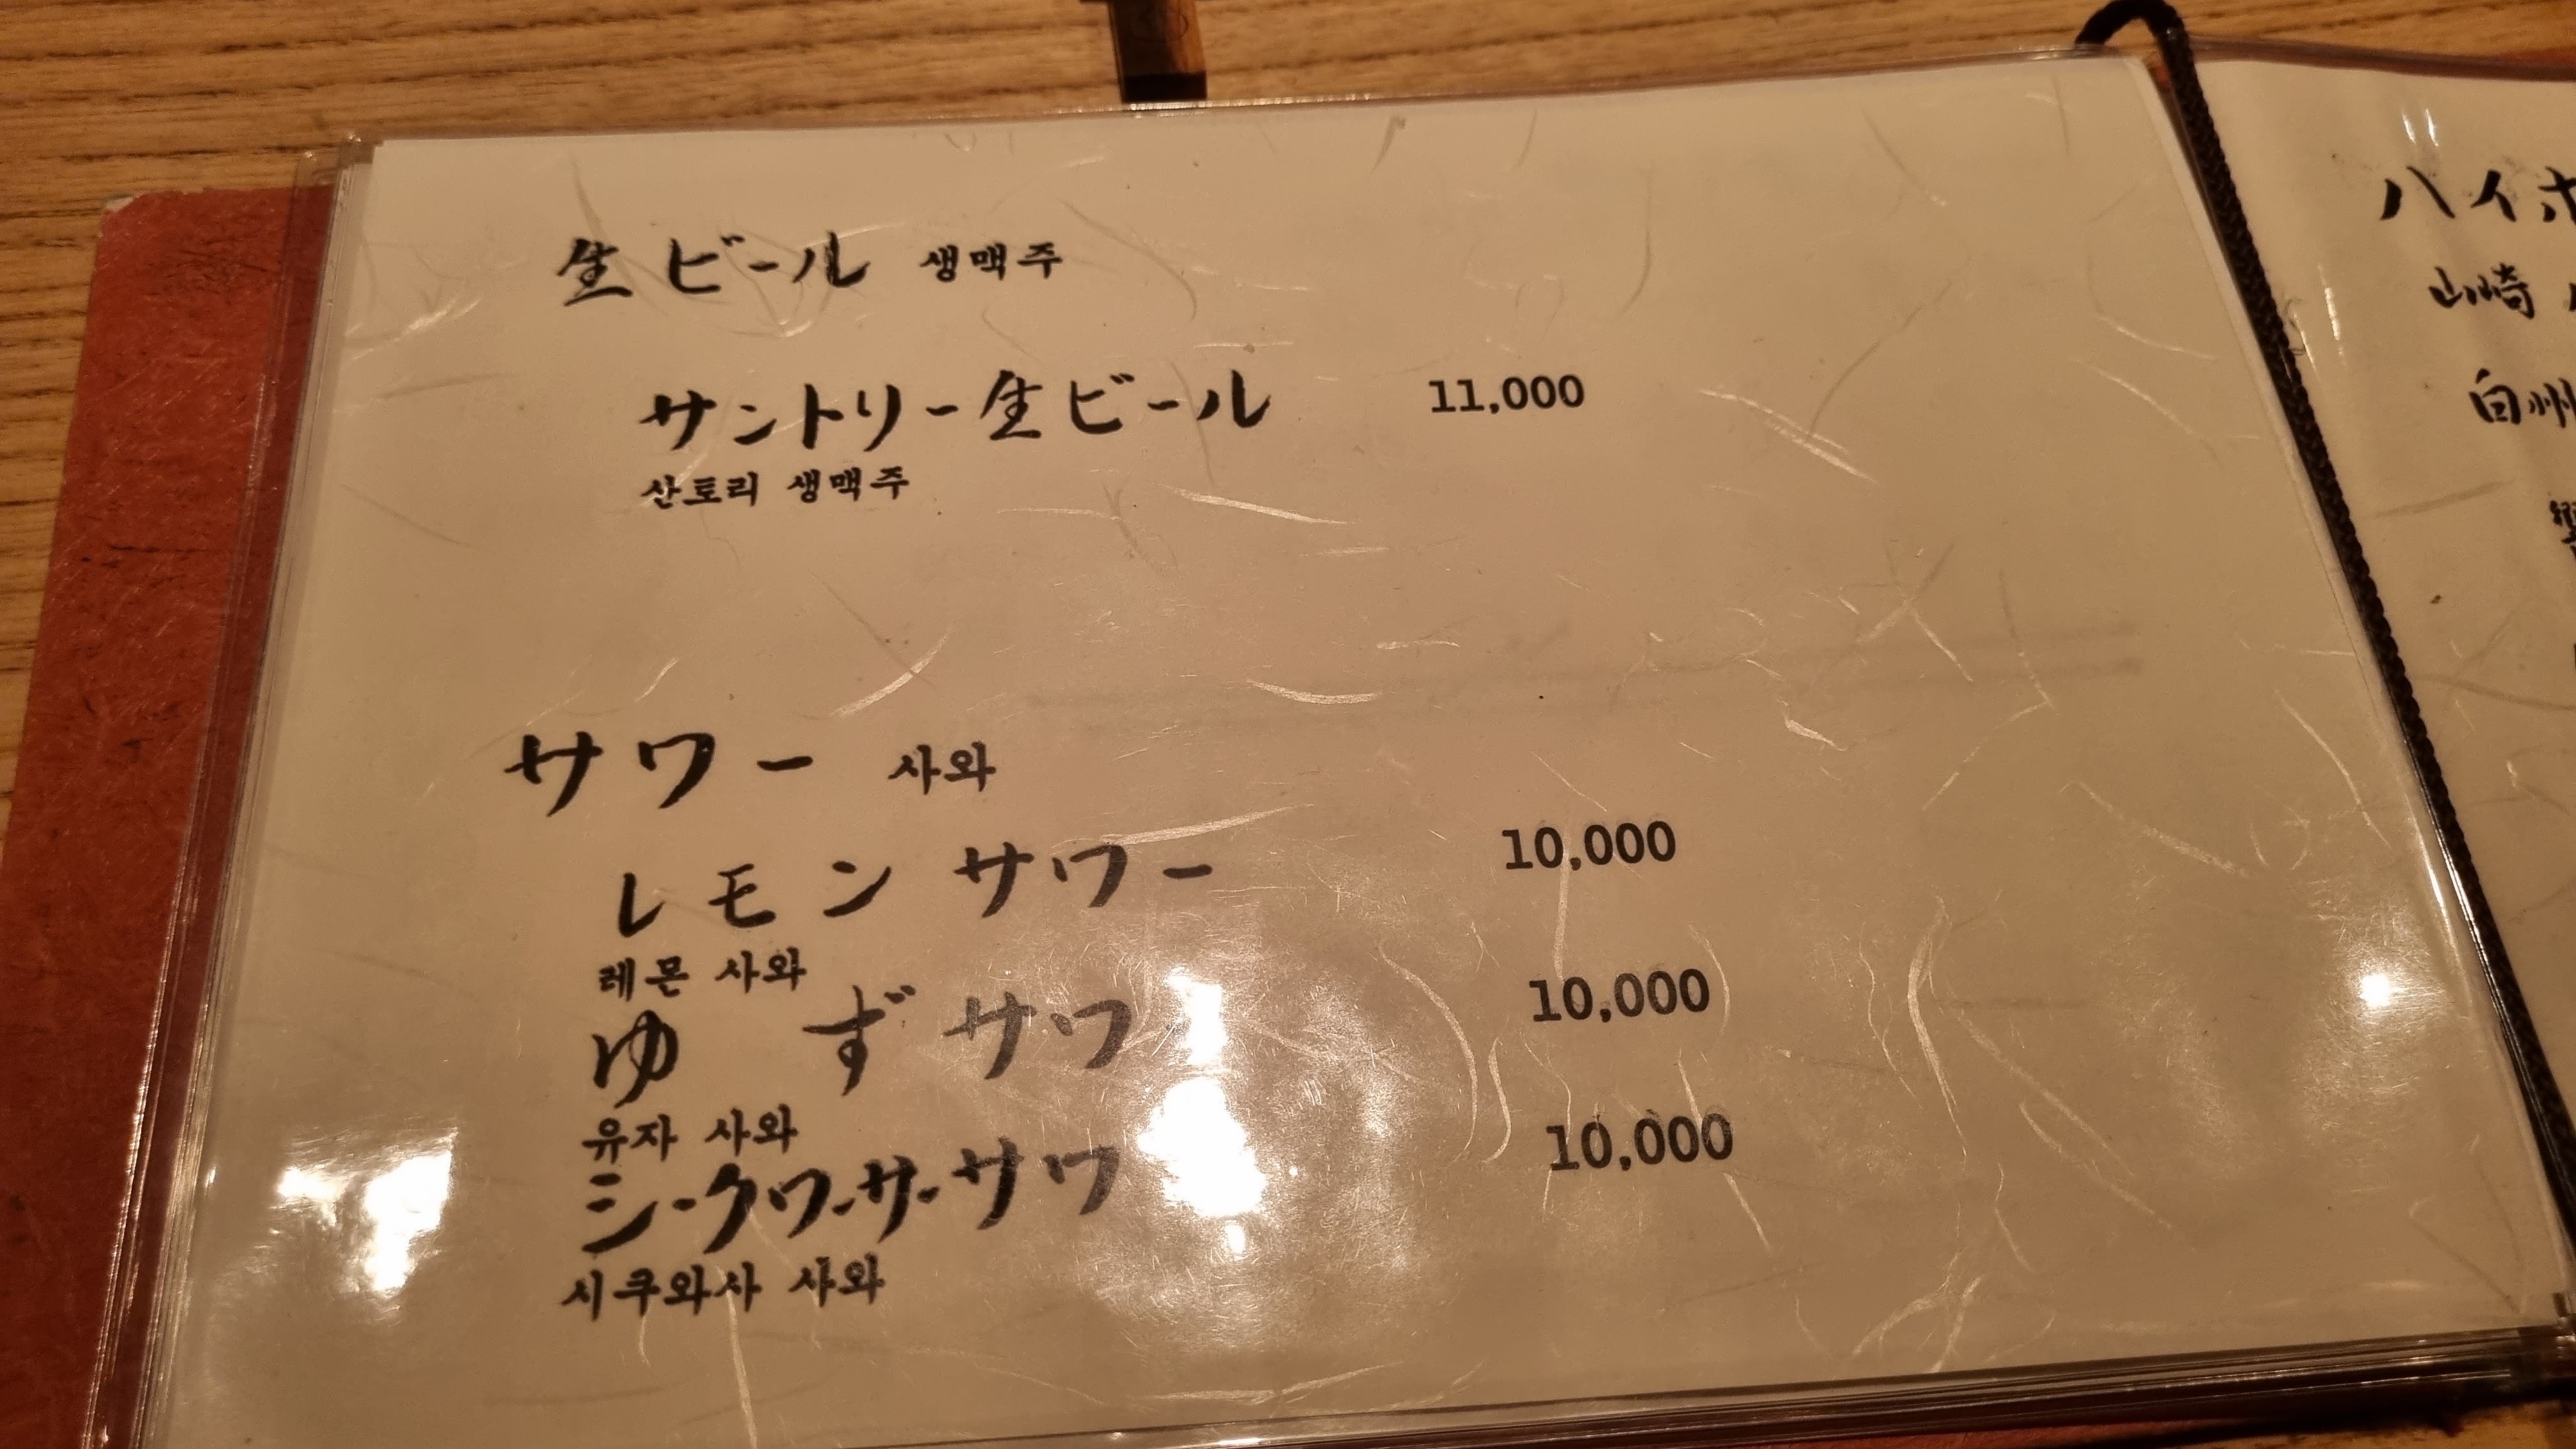 生ビール 생맥주
サントリー生ビール 11,000
산토리 생맥주
サワー 사와
レモンサワー 10,000
레몬 사와
ゆずサワ 10,000
유자 사와
シークワーサーサワ 10,000
시쿠와사 사와
ハイホ
山崎
白州